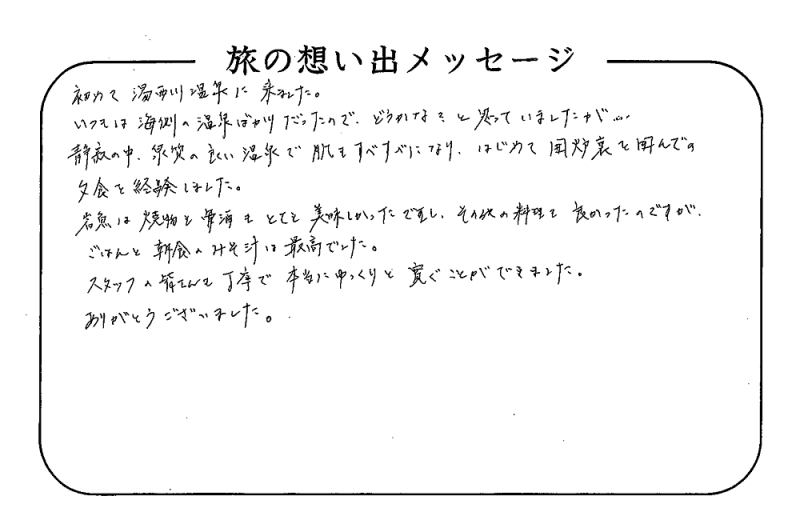 旅の想い出メッセージ
初めて湯西川温泉に来ました。
いつもは海側の温泉ばかりだったので、どうかな?と思っていましたが…
静寂の中、泉質の良い温泉で肌もすべすべになり、はじめて囲炉裏を囲んでの
夕食を経験しました。
岩魚は焼物もとても美味しかったですし、その他の料理も良かったのですが、
ごはんと朝食のみそ汁は最高でした。
スタッフの皆さんも丁寧で本当にゆっくりと寛ぐことができました。
ありがとうございました。